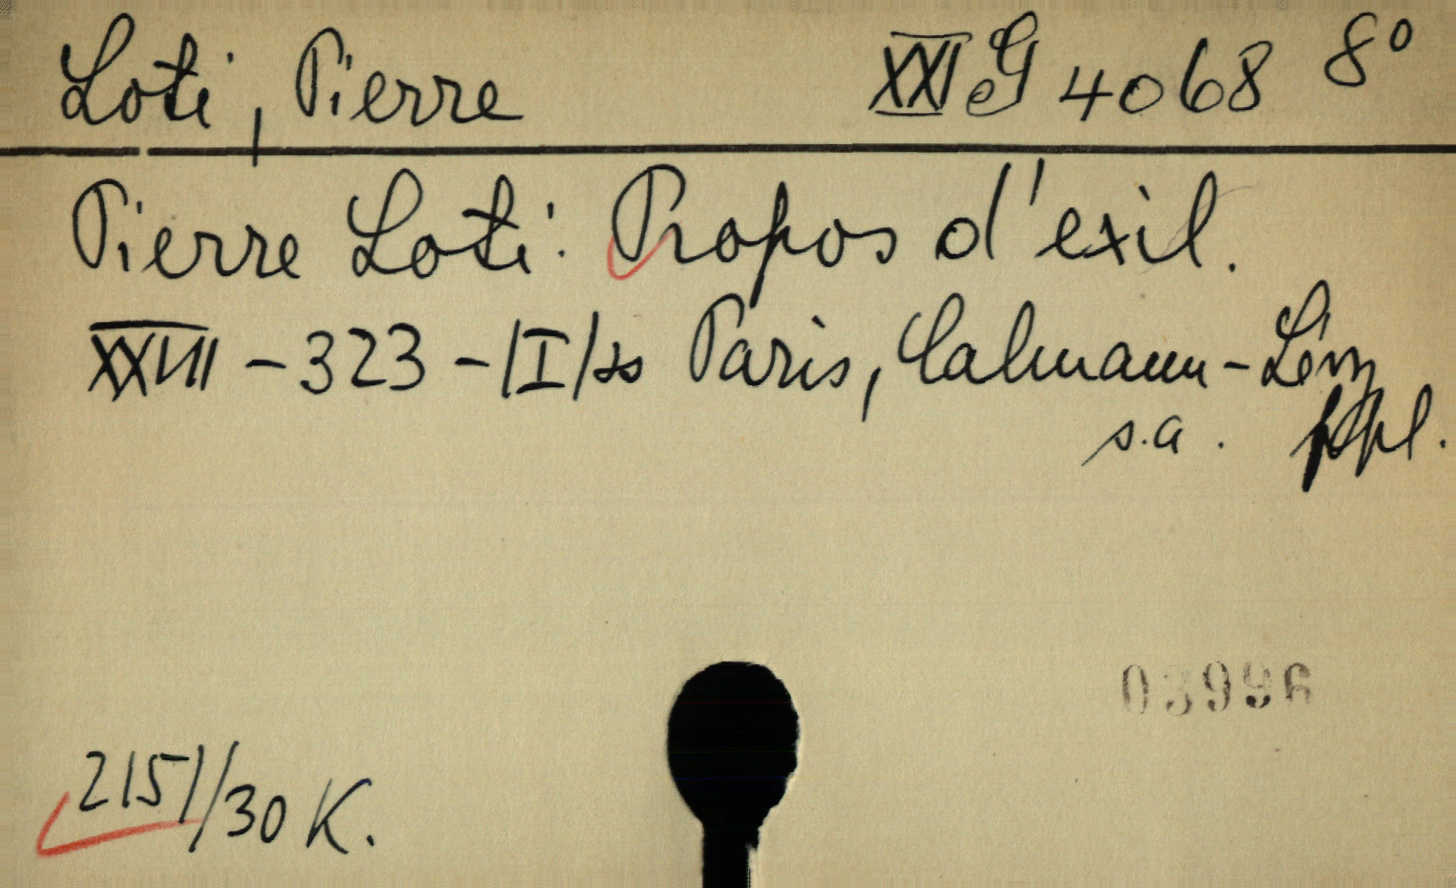 Loti, Pierre XXI G 4068 8°
Pierre Loti: Propos d'exil.
XXVII - 323 - /I/ ss Paris, Calmann-Lévy
s.a. ppl.
03996
2151/30 K.